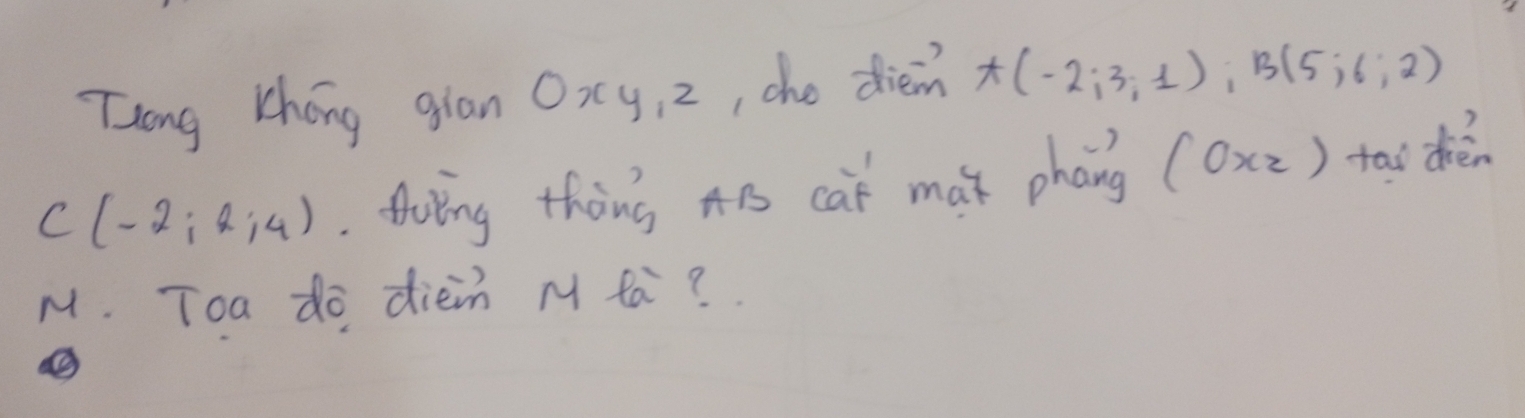 Trong không gian Oxy,z, cho điểm A(-2;3;1); B(5;6;2)
C(-2;2;4). Đường thẳng AB cắt mặt phẳng (Oxz) tại điểm
M. Tọa độ điểm M là?.